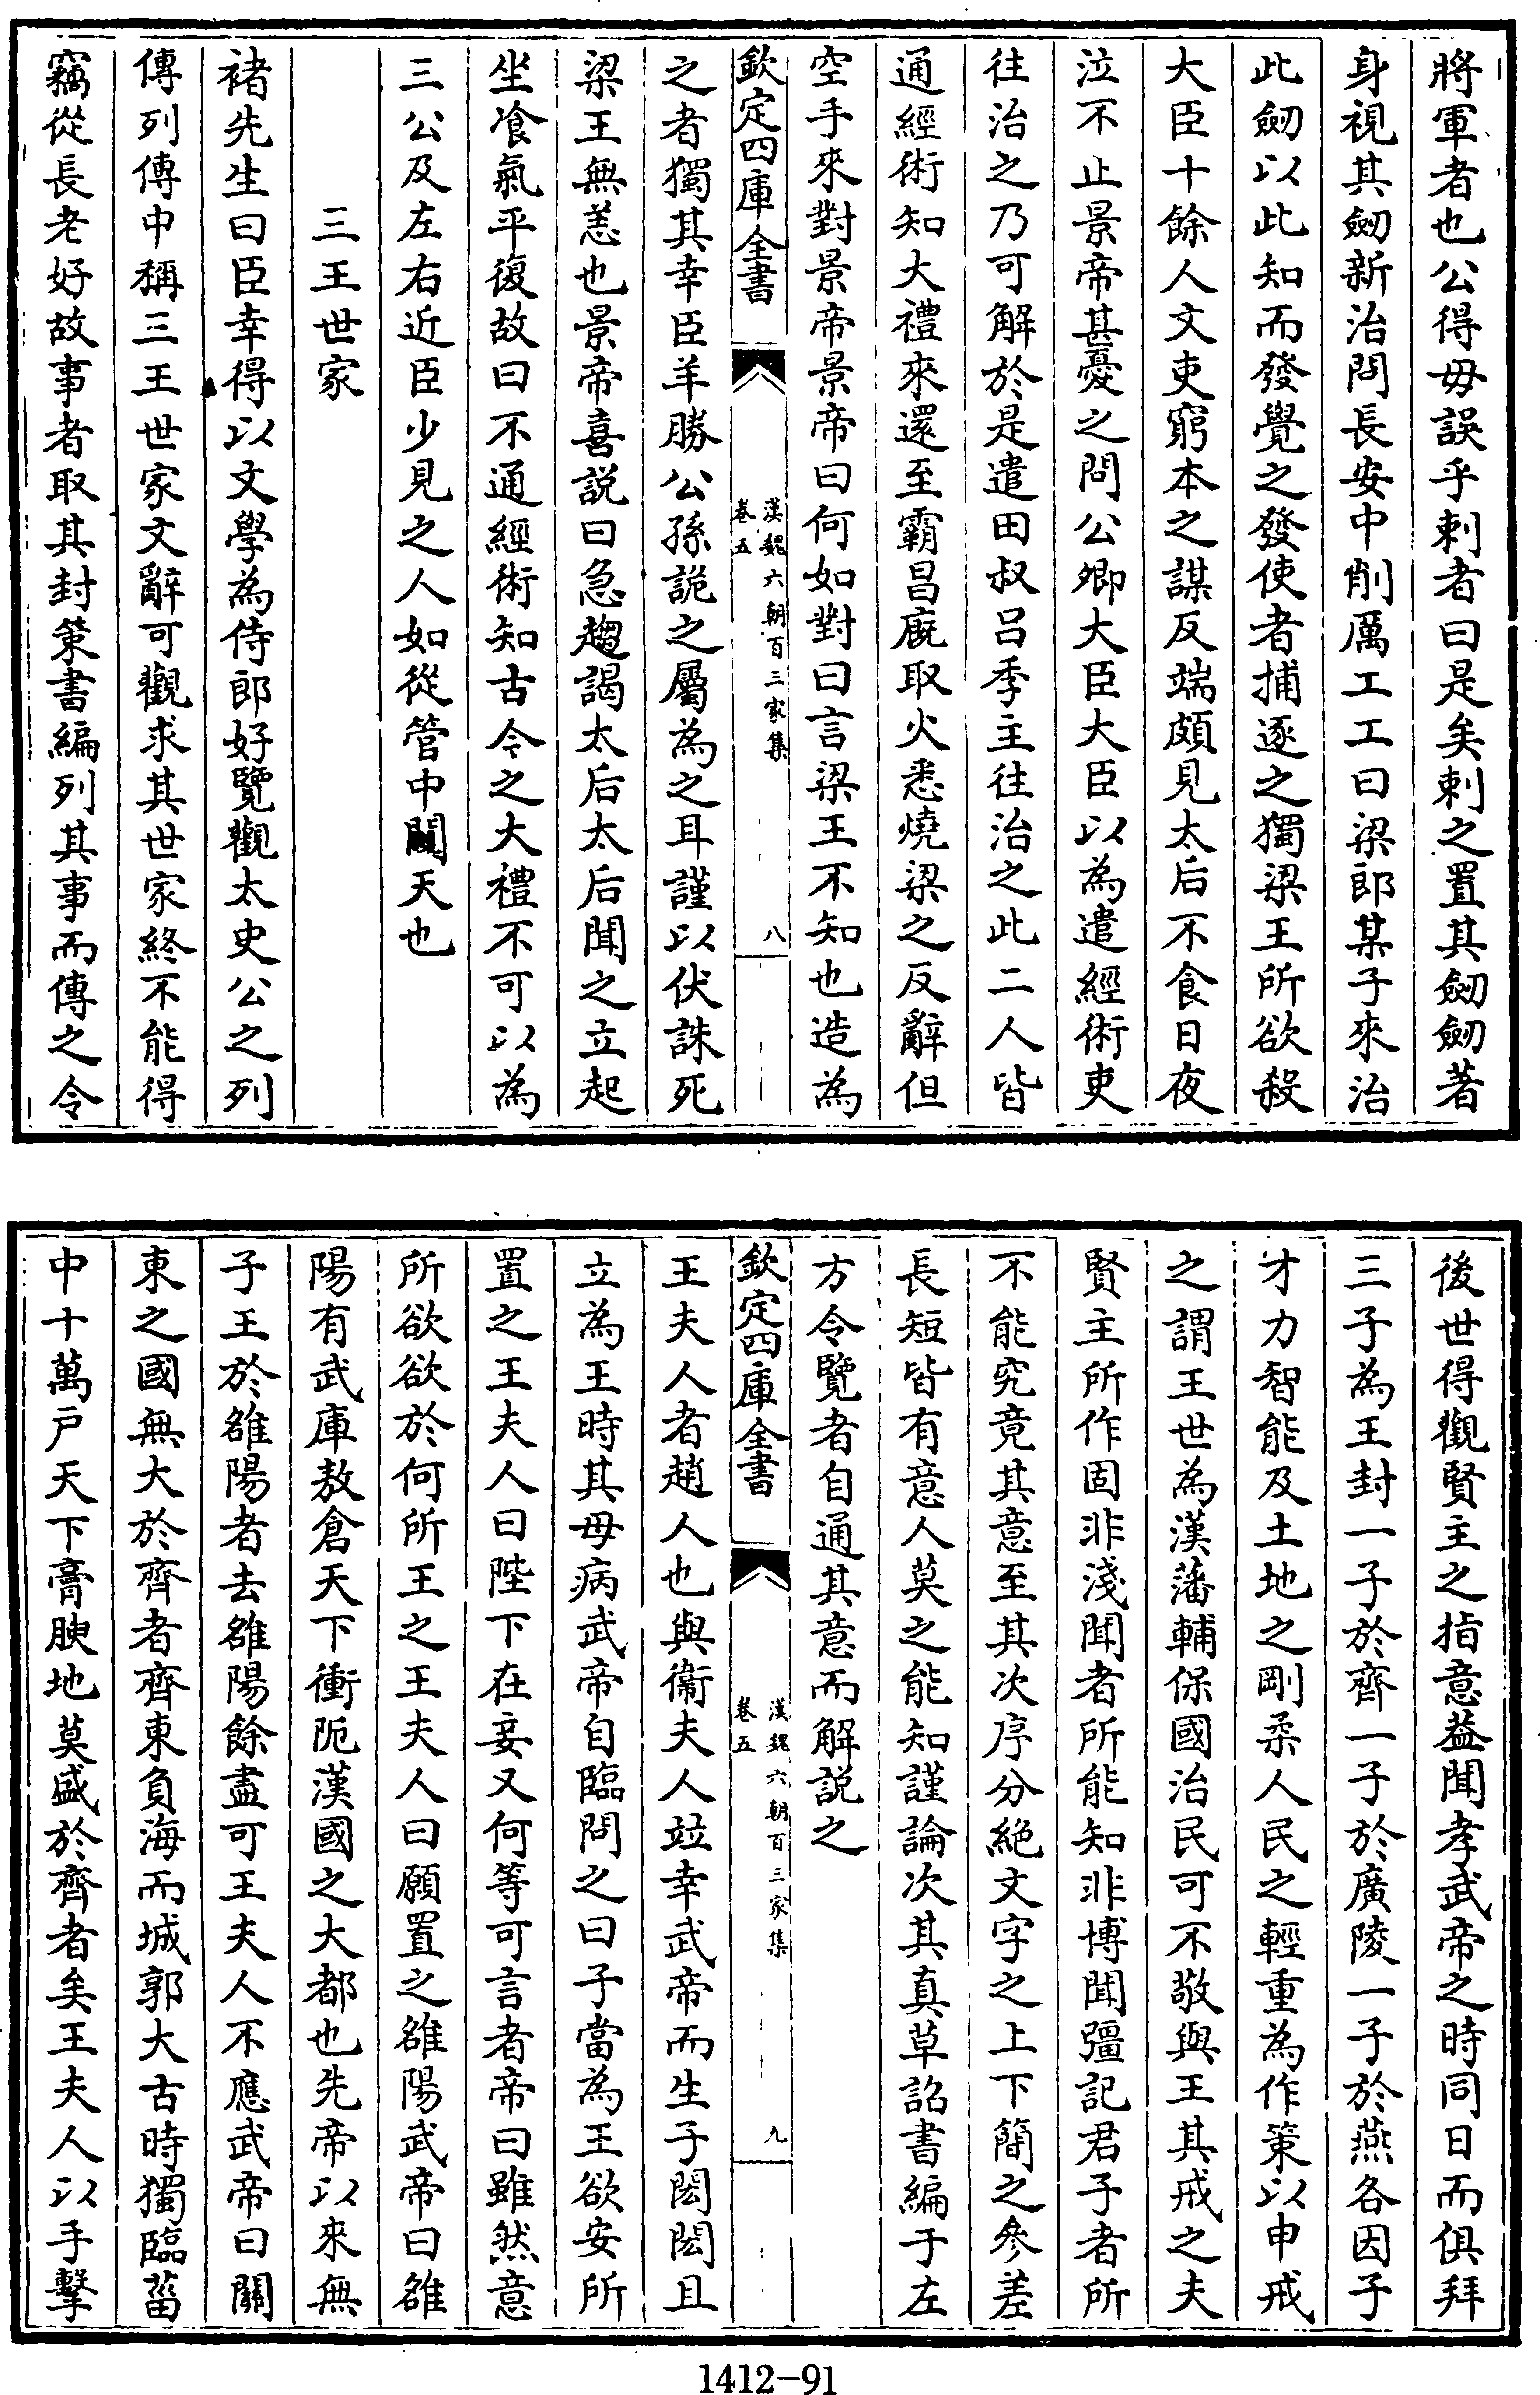 將軍者也公得毋誤乎刺者曰是矣刺之置其劒劒著
身視其劒新治問長安中削厲工工曰梁郎某子來治
此劒以此知而發覺之發使者捕逐之獨梁王所欲殺
大臣十餘人文吏窮本之謀反端頗見太后不食日夜
泣不止景帝甚憂之問公卿大臣大臣以為遣經術吏
往治之乃可解於是遣田叔呂季主往治之此二人皆
通經術知大禮來還至霸昌廐取火悉燒梁之反辭但
空手來對景帝景帝曰何如對曰言梁王不知也造為
欽定四庫全書
漢魏六朝百三家集
卷五
八
之者獨其幸臣羊勝公孫詭之屬為之耳謹以伏誅死
梁王無恙也景帝喜說曰急趨謁太后太后聞之立起
坐飡氣平復故曰不通經術知古今之大禮不可以為
三公及左右近臣少見之人如從管中闚天也
三王世家
褚先生曰臣幸得以文學為侍郎好覽觀太史公之列
傳列傳中稱三王世家文辭可觀求其世家終不能得
竊從長老好故事者取其封策書編列其事而傳之令
後世得觀賢主之指意益聞孝武帝之時同日而俱拜
三子為王封一子於齊一子於廣陵一子於燕各因子
才力智能及土地之剛柔人民之輕重為作策以申戒
之謂王世為漢藩輔保國治民可不敬與王其戒之夫
賢主所作固非淺聞者所能知非博聞彊記君子者所
不能究竟其意至其次序分絕文字之上下簡之參差
長短皆有意人莫之能知謹論次其真草詔書編于左
方令覽者自通其意而解說之
欽定四庫全書
漢魏六朝百三家集
卷五
九
王夫人者趙人也與衞夫人竝幸武帝而生子閎閎且
立為王時其母病武帝自臨問之曰子當為王欲安所
置之王夫人曰陛下在妾又何等可言者帝曰雖然意
所欲欲於何所王之王夫人曰願置之雒陽武帝曰雒
陽有武庫敖倉天下衝阨漢國之大都也先帝以來無
子王於雒陽者去雒陽餘盡可王夫人不應武帝曰關
東之國無大於齊者齊東負海而城郭大古時獨臨菑
中十萬戶天下膏腴地莫盛於齊者矣王夫人以手擊
1412-91